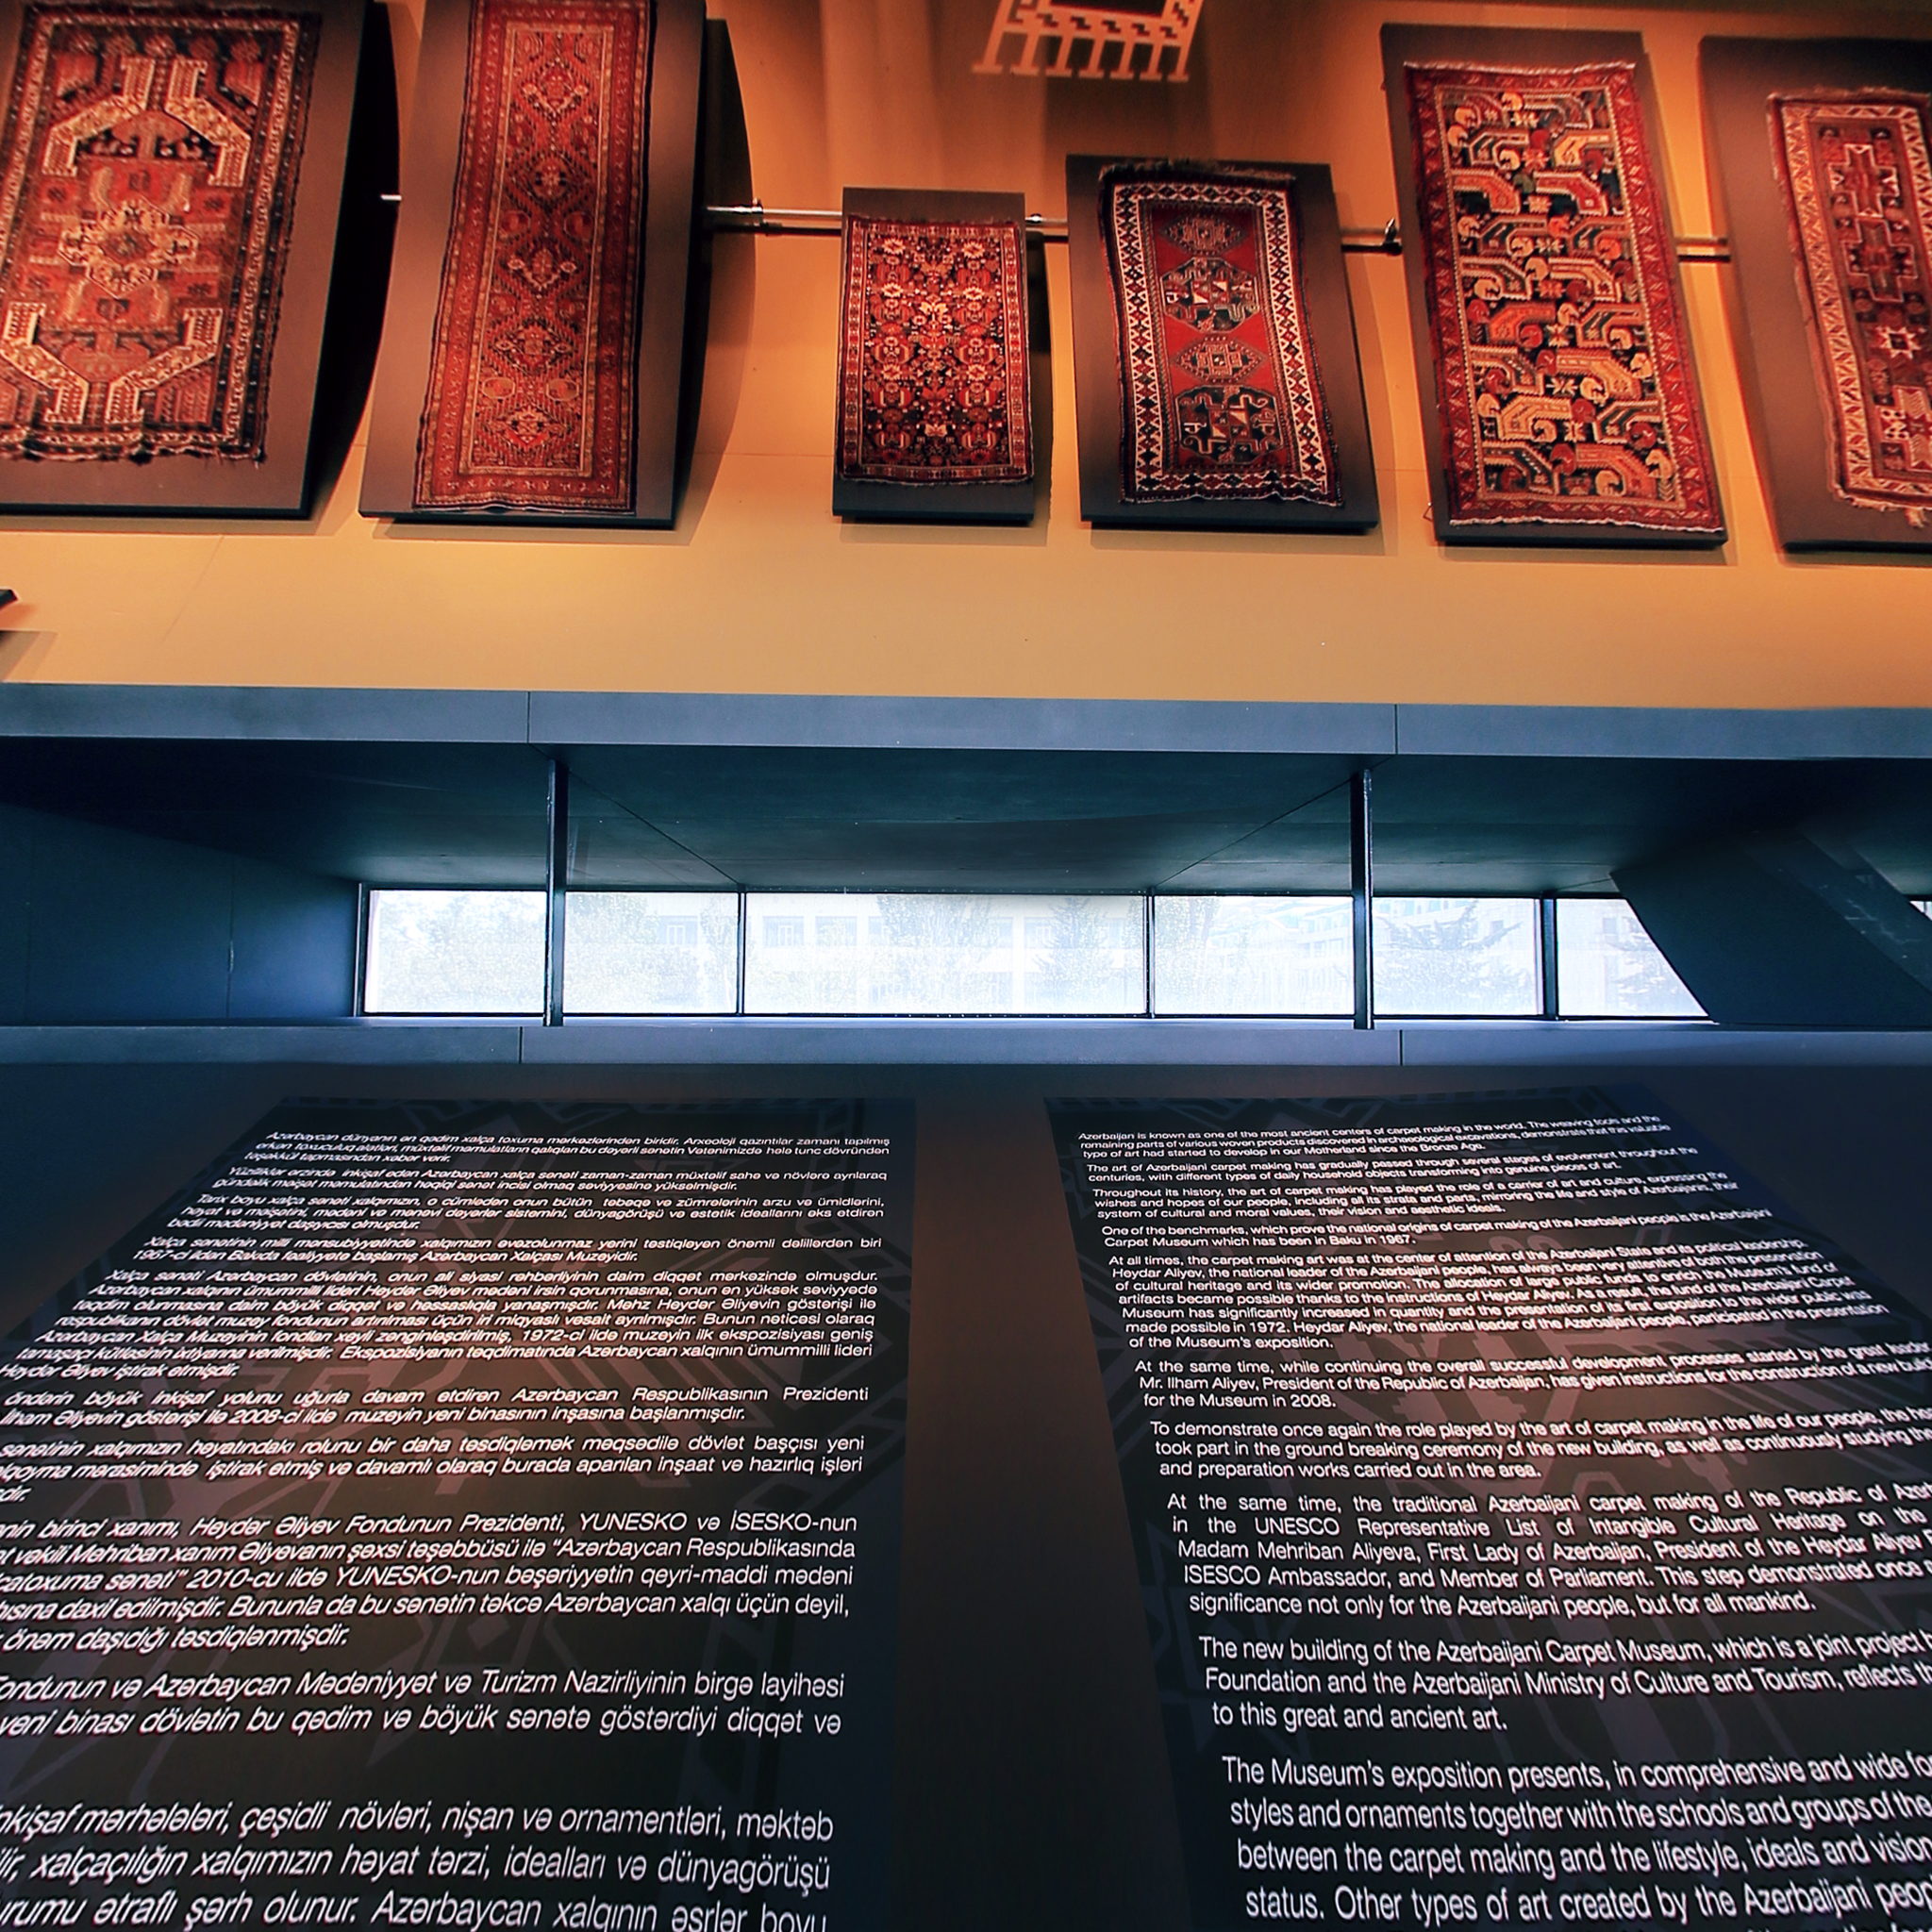 Azərbaycan dünyanın ən qədim xalça toxuma mərkəzlərindən biridir. Arxeoloji qazıntılar zamanı tapılmış
erkən toxuculuq alətləri, müxtəlif məmulatların qalıqları bu dəyərli sənətin Vətənimizdə hələ tunc dövründən
təşəkkül tapmasından xəbər verir.
Yüzilliklər ərzində inkişaf edən Azərbaycan xalça sənəti zaman-zaman müxtəlif sahə və növlərə ayrılaraq
gündəlik məişət məmulatından həqiqi sənət incisi olmaq səviyyəsinə yüksəlmişdir.
Tarix boyu xalça sənəti xalqımızın, o cümlədən onun bütün təbəqə və zümrələrinin arzu və ümidlərini,
həyat və məişətini, mədəni və mənəvi dəyərlər sistemini, dünyagörüşü və estetik ideallarını əks etdirən
bədii mədəniyyət daşıyıcısı olmuşdur.
Xalça sənətinin milli mənsubiyyətində xalqımızın əvəzolunmaz yerini təstiqləyən önəmli dəlillərdən biri
1967-ci ildən Bakıda fəaliyyətə başlamış Azərbaycan Xalçası Muzeyidir.
Xalça sənəti Azərbaycan dövlətinin, onun ali siyasi rəhbərliyinin daim diqqət mərkəzində olmuşdur.
Azərbaycan xalqının ümummilli lideri Heydər Əliyev mədəni irsin qorunmasına, onun ən yüksək səviyyədə
təqdim olunmasına daim böyük diqqət və həssaslıqla yanaşmışdır. Məhz Heydər Əliyevin göstərişi ilə
respublikanın dövlət muzey fondunun artırılması üçün iri miqyaslı vəsait ayrılmışdır. Bunun nəticəsi olaraq
Azərbaycan Xalça Muzeyinin fondları xeyli zənginləşdirilmiş, 1972-ci ildə muzeyin ilk ekspozisiyası geniş
tamaşaçı kütləsinin ixtiyarına verilmişdir. Ekspozisiyanın təqdimatında Azərbaycan xalqının ümummilli lideri
Heydər Əliyev iştirak etmişdir.
öndərin böyük inkişaf yolunu uğurla davam etdirən Azərbaycan Respublikasının Prezidenti
İlham Əliyevin göstərişi ilə 2008-ci ildə muzeyin yeni binasının inşasına başlanmışdır.
sənətinin xalqımızın həyatındakı rolunu bir daha təsdiqləmək məqsədilə dövlət başçısı yeni
mərasimində iştirak etmiş və davamlı olaraq burada aparılan inşaat və hazırlıq işləri
birinci xanımı, Heydər Əliyev Fondunun Prezidenti, YUNESKO və İSESKO-nun
vəkili Mehriban xanım Əliyevanın şəxsi təşəbbüsü ilə "Azərbaycan Respublikasında
sənəti" 2010-cu ildə YUNESKO-nun bəşəriyyətin qeyri-maddi mədəni
daxil edilmişdir. Bununla da bu sənətin təkcə Azərbaycan xalqı üçün deyil,
önəm daşıdığı təsdiqlənmişdir.
Fondunun və Azərbaycan Mədəniyyət və Turizm Nazirliyinin birgə layihəsi
yeni binası dövlətin bu qədim və böyük sənətə göstərdiyi diqqət və
inkişaf mərhələləri, çeşidli növləri, nişan və ornamentləri, məktəb
xalçaçılığın xalqımızın həyat tərzi, idealları və dünyagörüşü
ətraflı şərh olunur. Azərbaycan xalqının əsrlər boyu
Azerbaijan is known as one of the most ancient centers of carpet making in the world. The weaving tools and the
remaining parts of various woven products discovered in archaeological excavations, demonstrate that this valuable
type of art had started to develop in our Motherland since the Bronze Age.
The art of Azerbaijani carpet making has gradually passed through several stages of evolvement throughout the
centuries, with different types of daily household objects transforming into genuine pieces of art.
Throughout its history, the art of carpet making has played the role of a carrier of art and culture, expressing the
wishes and hopes of our people, including all its strata and parts, mirroring the life and style of Azerbaijanis, their
system of cultural and moral values, their vision and aesthetic ideals.
One of the benchmarks, which prove the national origins of carpet making of the Azerbaijani people is the Azerbaijani
Carpet Museum which has been in Baku in 1967.
At all times, the carpet making art was at the center of attention of the Azerbaijani State and its political leadership.
Heydar Aliyev, the national leader of the Azerbaijani people, has always been very attentive of both the preservation
of cultural heritage and its wider promotion. The allocation of large public funds to enrich the Museum's fund of
artifacts became possible thanks to the instructions of Heydar Aliyev. As a result, the fund of the Azerbaijani Carpet
Museum has significantly increased in quantity and the presentation of its first exposition to the wider public was
made possible in 1972. Heydar Aliyev, the national leader of the Azerbaijani people, participated in the presentation
of the Museum's exposition.
At the same time, while continuing the overall successful development processes started by the great leader
Mr. Ilham Aliyev, President of the Republic of Azerbaijan, has given instructions for the construction of a new
for the Museum in 2008.
To demonstrate once again the role played by the art of carpet making in the life of our people, the
took part in the ground breaking ceremony of the new building, as well as continuously studying the
and preparation works carried out in the area.
At the same time, the traditional Azerbaijani carpet making of the Republic of
in the UNESCO Representative List of Intangible Cultural Heritage on the
Madam Mehriban Aliyeva, First Lady of Azerbaijan, President of the Heydar Aliyev
ISESCO Ambassador, and Member of Parliament. This step demonstrated once
significance not only for the Azerbaijani people, but for all mankind.
The new building of the Azerbaijani Carpet Museum, which is a joint project
Foundation and the Azerbaijani Ministry of Culture and Tourism, reflects
to this great and ancient art.
The Museum's exposition presents, in comprehensive and wide
styles and ornaments together with the schools and groups of the
between the carpet making and the lifestyle, ideals and vision
status. Other types of art created by the Azerbaijani